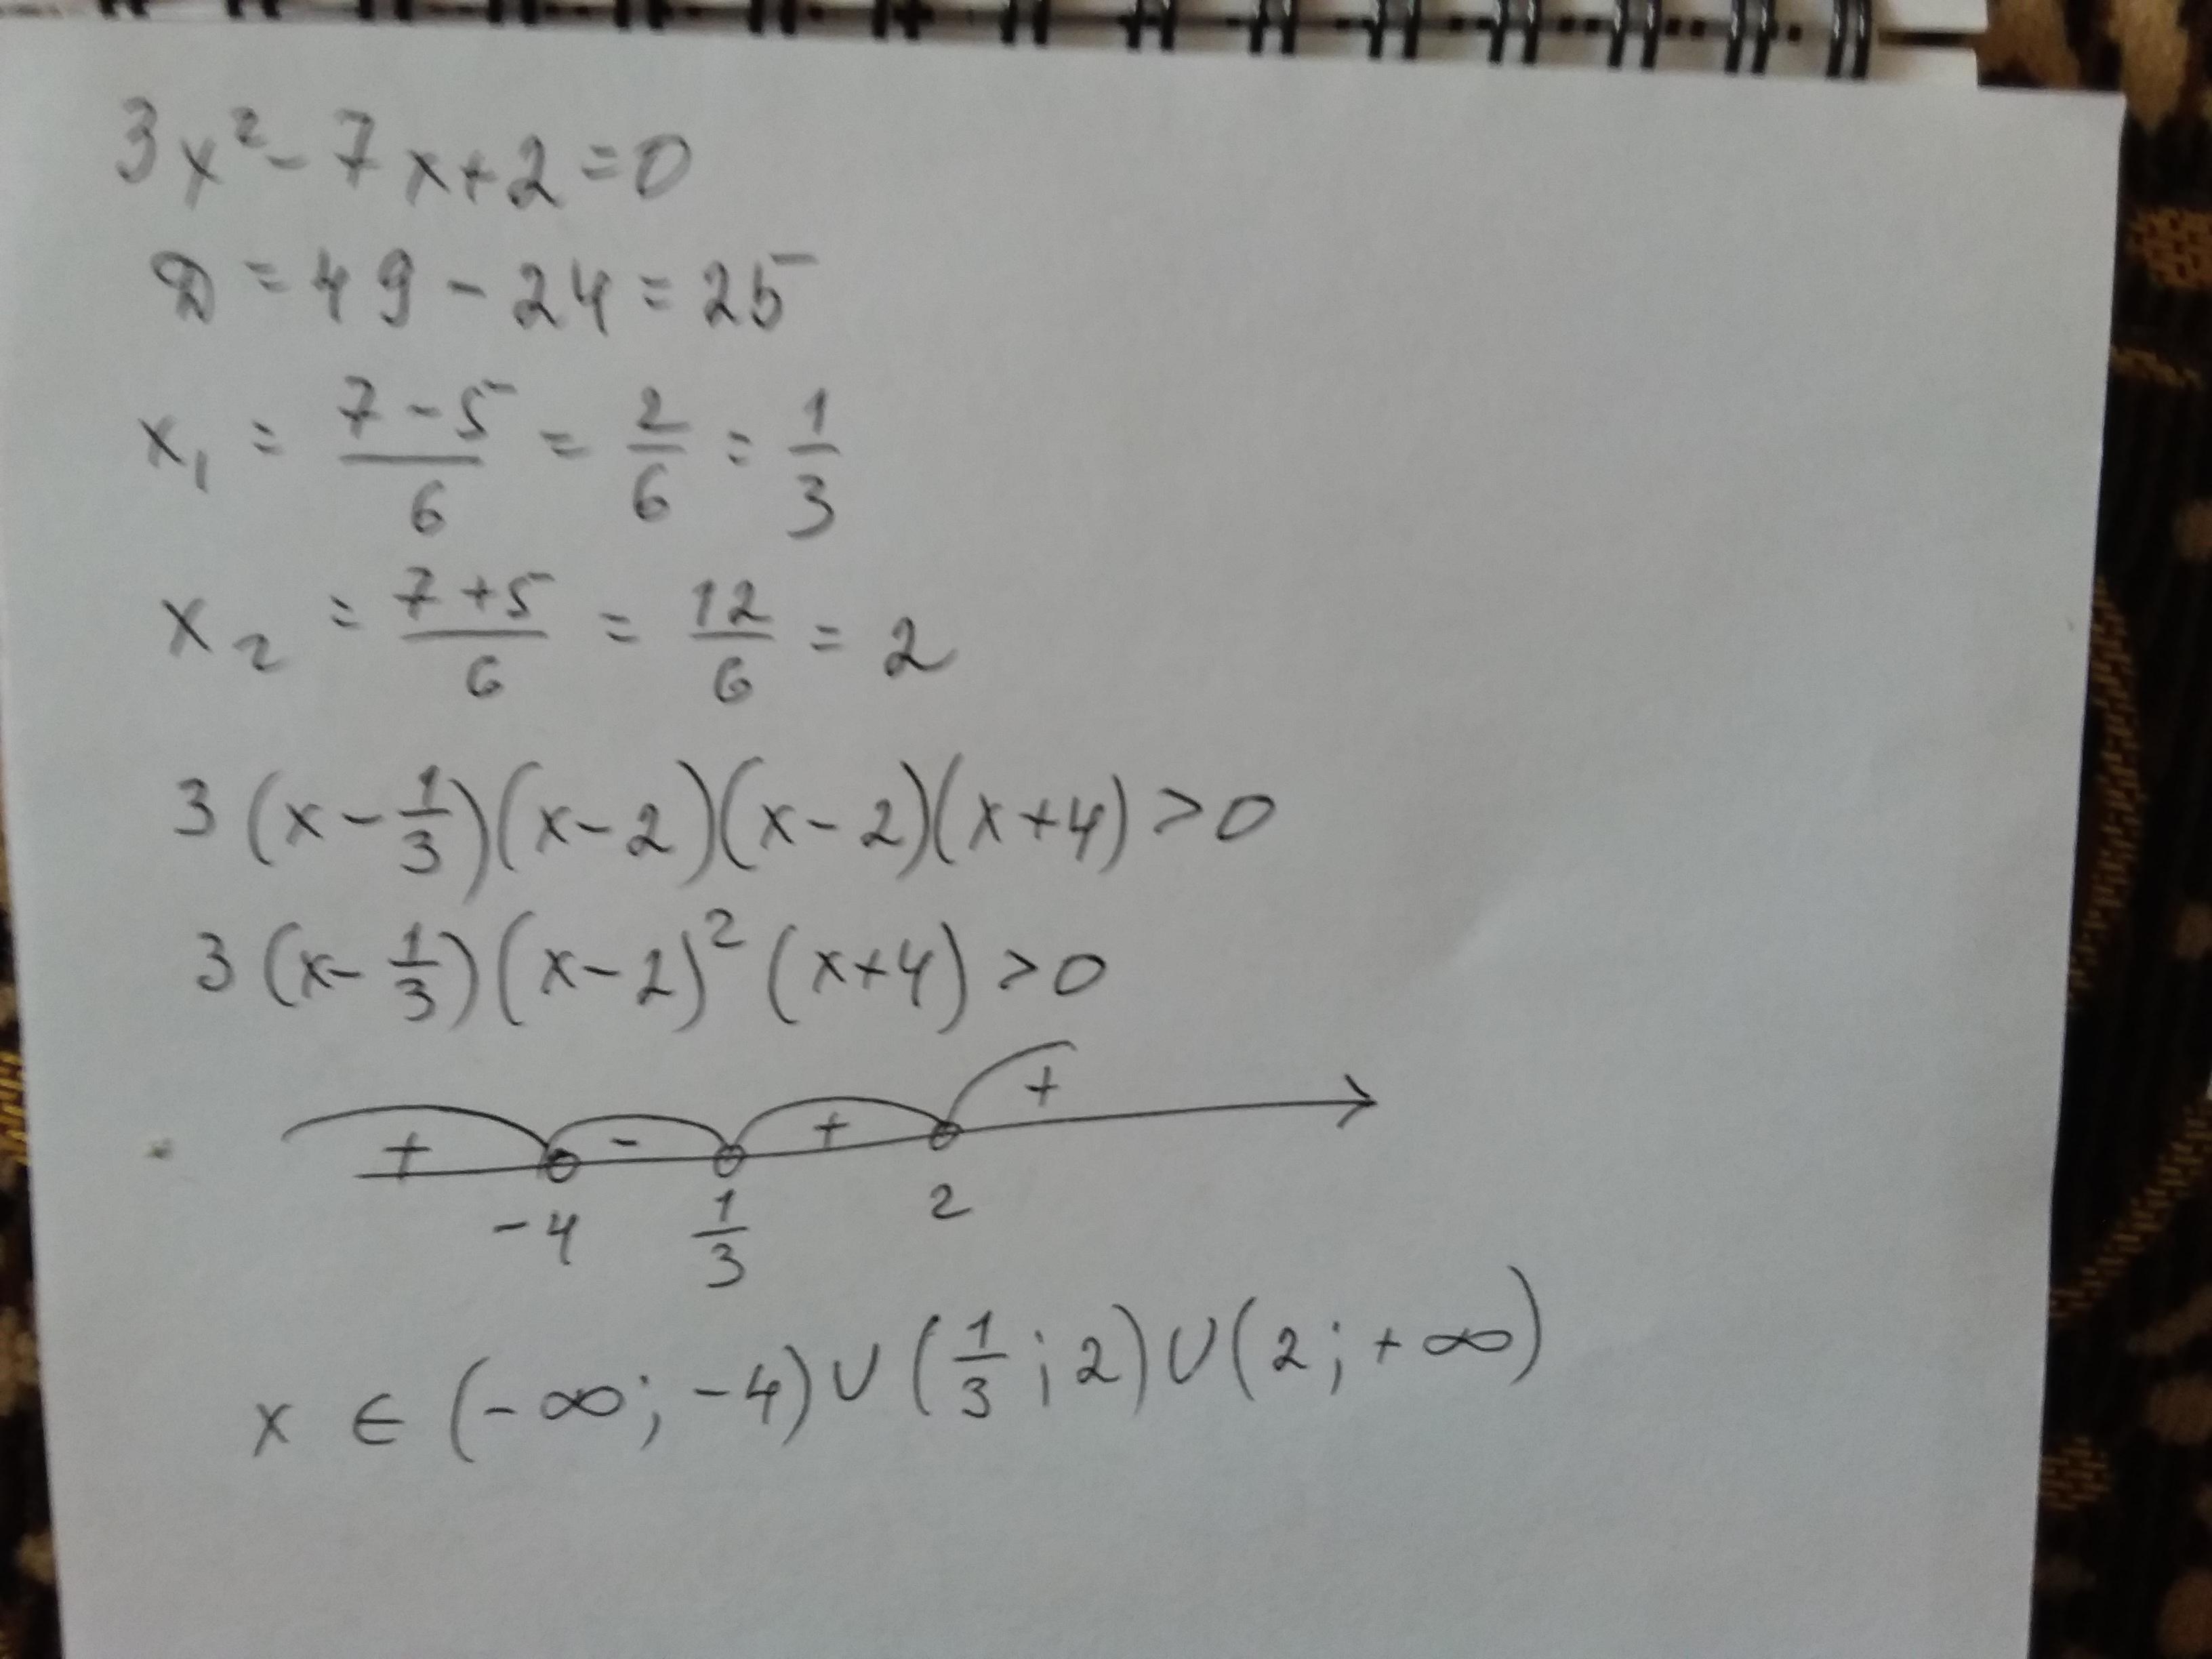 3x² - 7x + 2 = 0
D = 49 - 24 = 25
x₁ = (7 - 5)/6 = 2/6 = 1/3
x₂ = (7 + 5)/6 = 12/6 = 2
3(x - 1/3)(x - 2)(x - 2)(x + 4) > 0
3(x - 1/3)(x - 2)²(x + 4) > 0
+ - + +
-4 1/3 2
x ∈ (-∞; -4) ∪ (1/3; 2) ∪ (2; +∞)